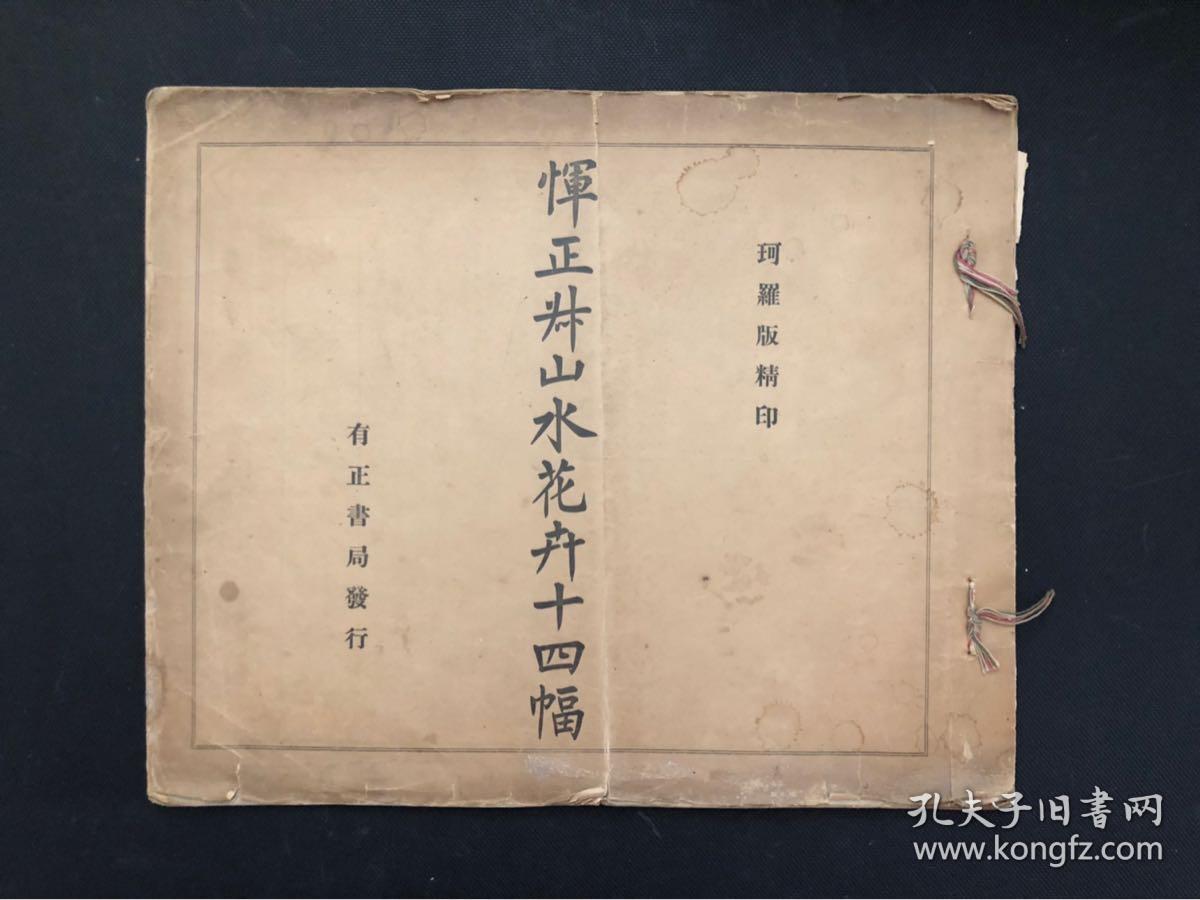 珂羅版精印
惲正叔山水花卉十四幅
有正書局發行
孔夫子旧书网
www.kongfz.com